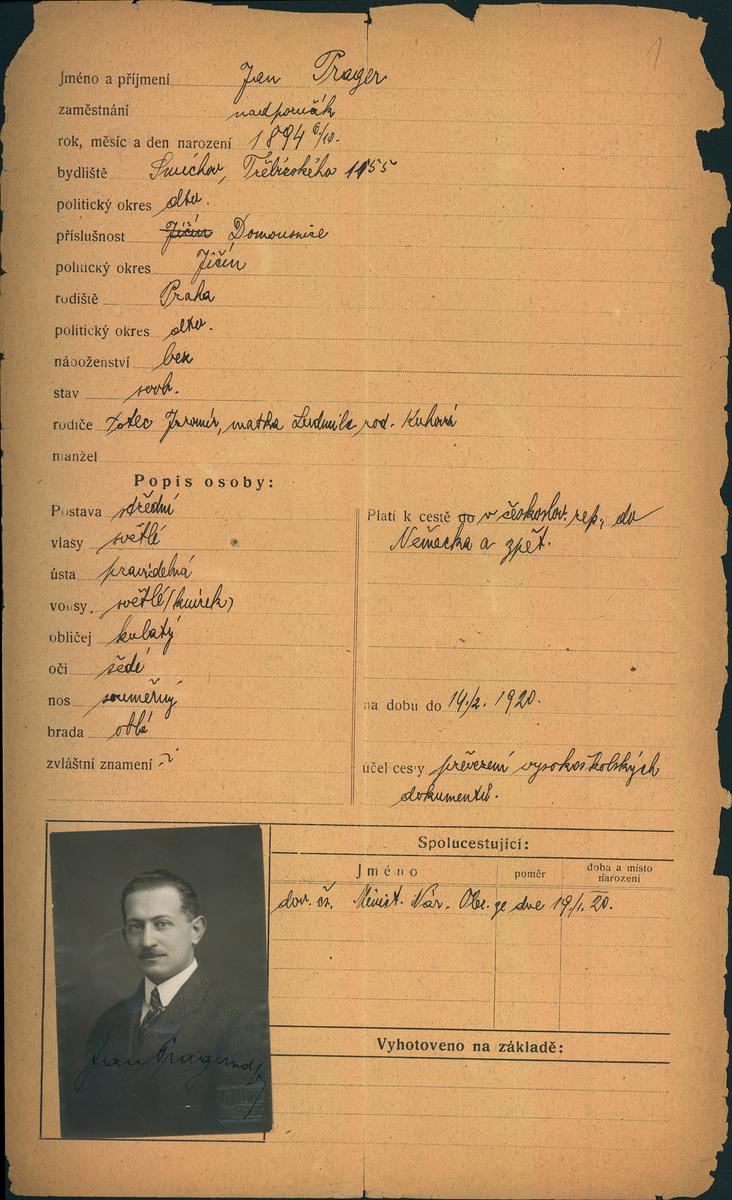 1
Jméno a příjmení Jan Prager
zaměstnání nadporučík
rok, měsíc a den narození 1894 6/10.
bydliště Smíchov, Třebízského 1155
politický okres dtto.
příslušnost Jičín Domousnice
politický okres Jičín
rodiště Praha
politický okres dtto.
náboženství bez
stav svob.
rodiče otec Jaromír, matka Ludmila rod.
manžel
Popis osoby:
Postava střední
vlasy světlé
ústa pravidelná
vousy světlé (knírek)
obličej kulatý
oči šedé
nos souměrný
brada oblá
zvláštní znamení
Platí k cestě do v českoslov. rep., do
Německa a zpět.
na dobu do 19./2. 1920.
účel cesty převezení vysokoškolských
dokumentů.
Spolucestující:
Jméno poměr doba a místo narození
čs. Minist. Nár. Obr. ze dne 19./I. 20.
Vyhotoveno na základě:
Jan Prager